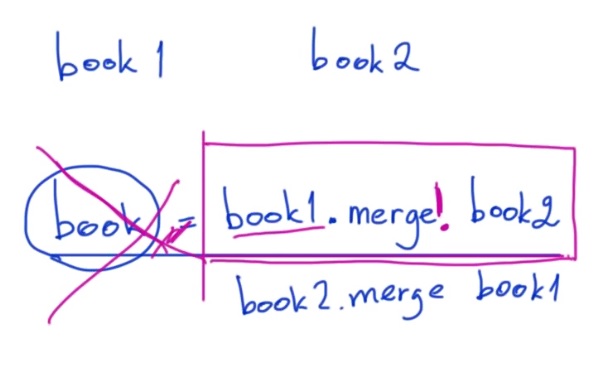 book 1 book 2
book = book1.merge! book2
book2.merge book1